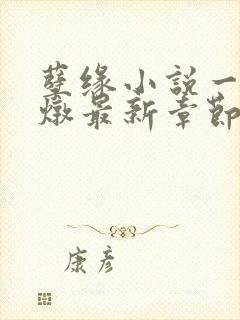 孽缘小説一
燉最新章節
康彦